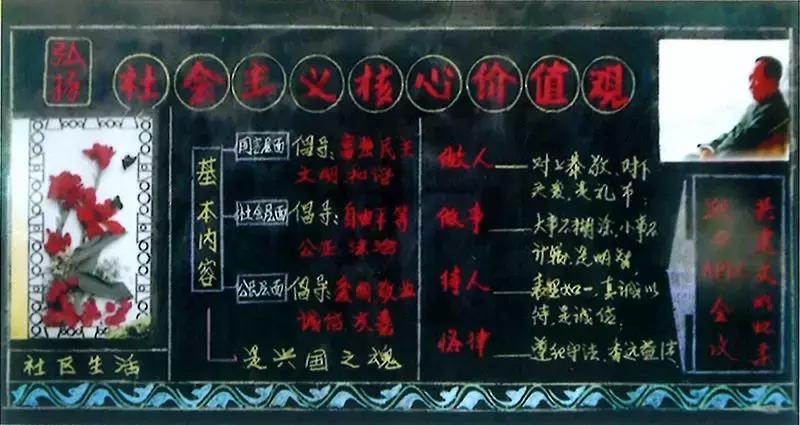 弘扬
社会主义核心价值观
基本内容
国家层面 倡导:富强民主
文明和谐
社会层面 倡导:自由平等
公正法治
公民层面 倡导:爱国敬业
诚信友善
是兴国之魂
做人 对上恭敬、对下
是礼节;
做事 大事不糊涂、小事不
计较,是明智,
待人 表里如一,真诚以
待,是诚信;
律 遵纪守法、
社区生活
共建文明
APEC会议